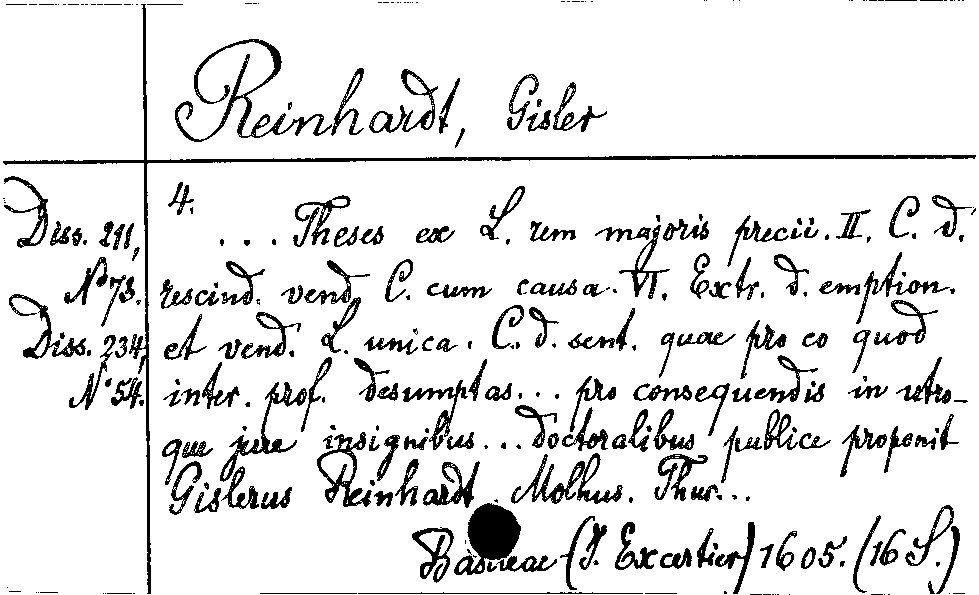 Reinhardt, Gisler
4.
Diss. 211,
N° 73.
Diss. 234,
N° 54.
... Theses ex L. rem majoris precii. II. C. d.
rescind. vend. C. cum causa. VI. Extr. d. emption.
et vend. L. unica. C. d. sent. quae pro eo quod
inter. prof. desumptas... pro consequendis in utro-
que jure insignibus... doctoralibus publice proponit
Gislerus Reinhardt Molhus. Thur...
Basileae (J. Excertier) 1605. (16 S.)